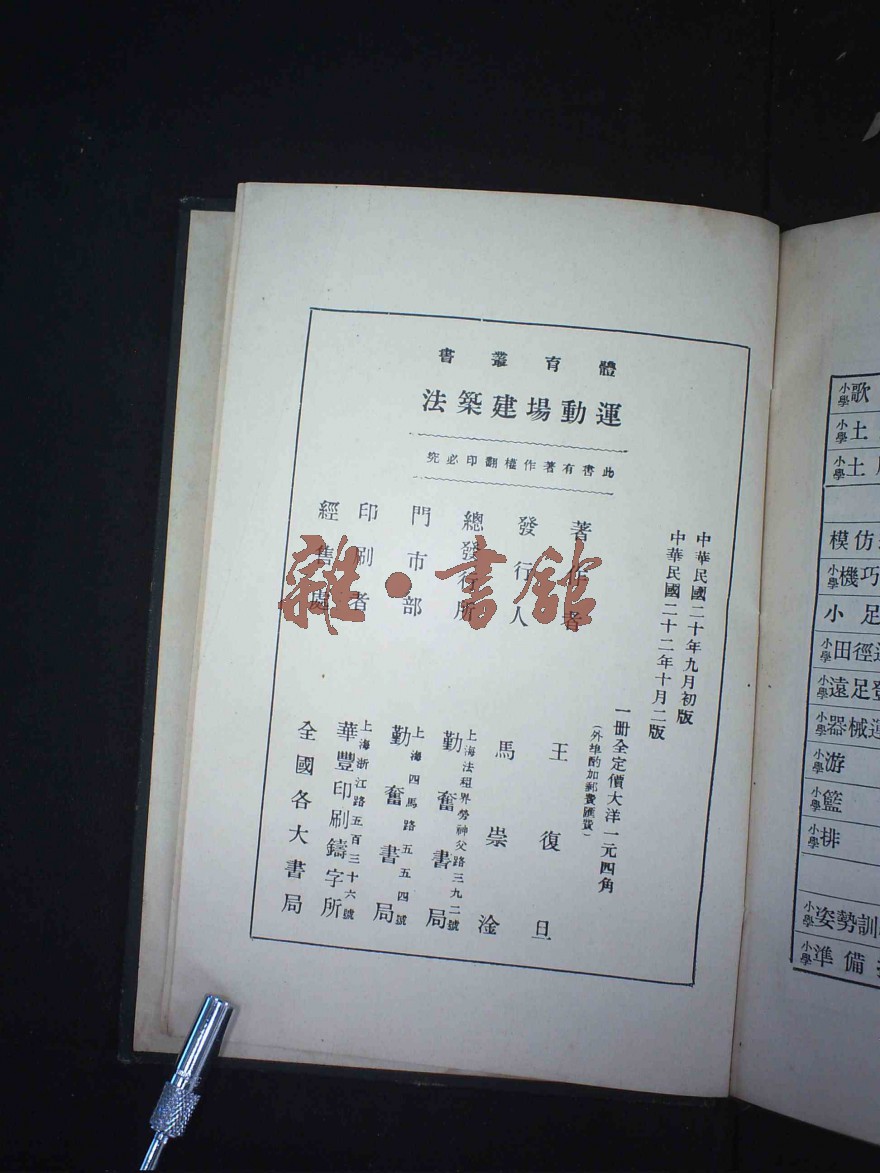 體育叢書
運動場建築法
此書有著作權翻印必究
中華民國二十年九月初版
中華民國二十二年十月二版
一冊全定價大洋一元四角
(外埠酌加郵費匯費)
著作者 王復旦
發行人 馬崇淦
總發行所 上海法租界勞神父路三九二號
勤奮書局
門市部 上海四馬路五五四號
勤奮書局
印刷者 上海浙江路五百三十六號
華豐印刷鑄字所
經售處 全國各大書局
雜·書館
小學歌
小學土
小學土
模仿
小學機巧
小足
小學田徑
小學遠足
小學器械
小學游
小學籃
小學排
小學姿勢訓
小學準備